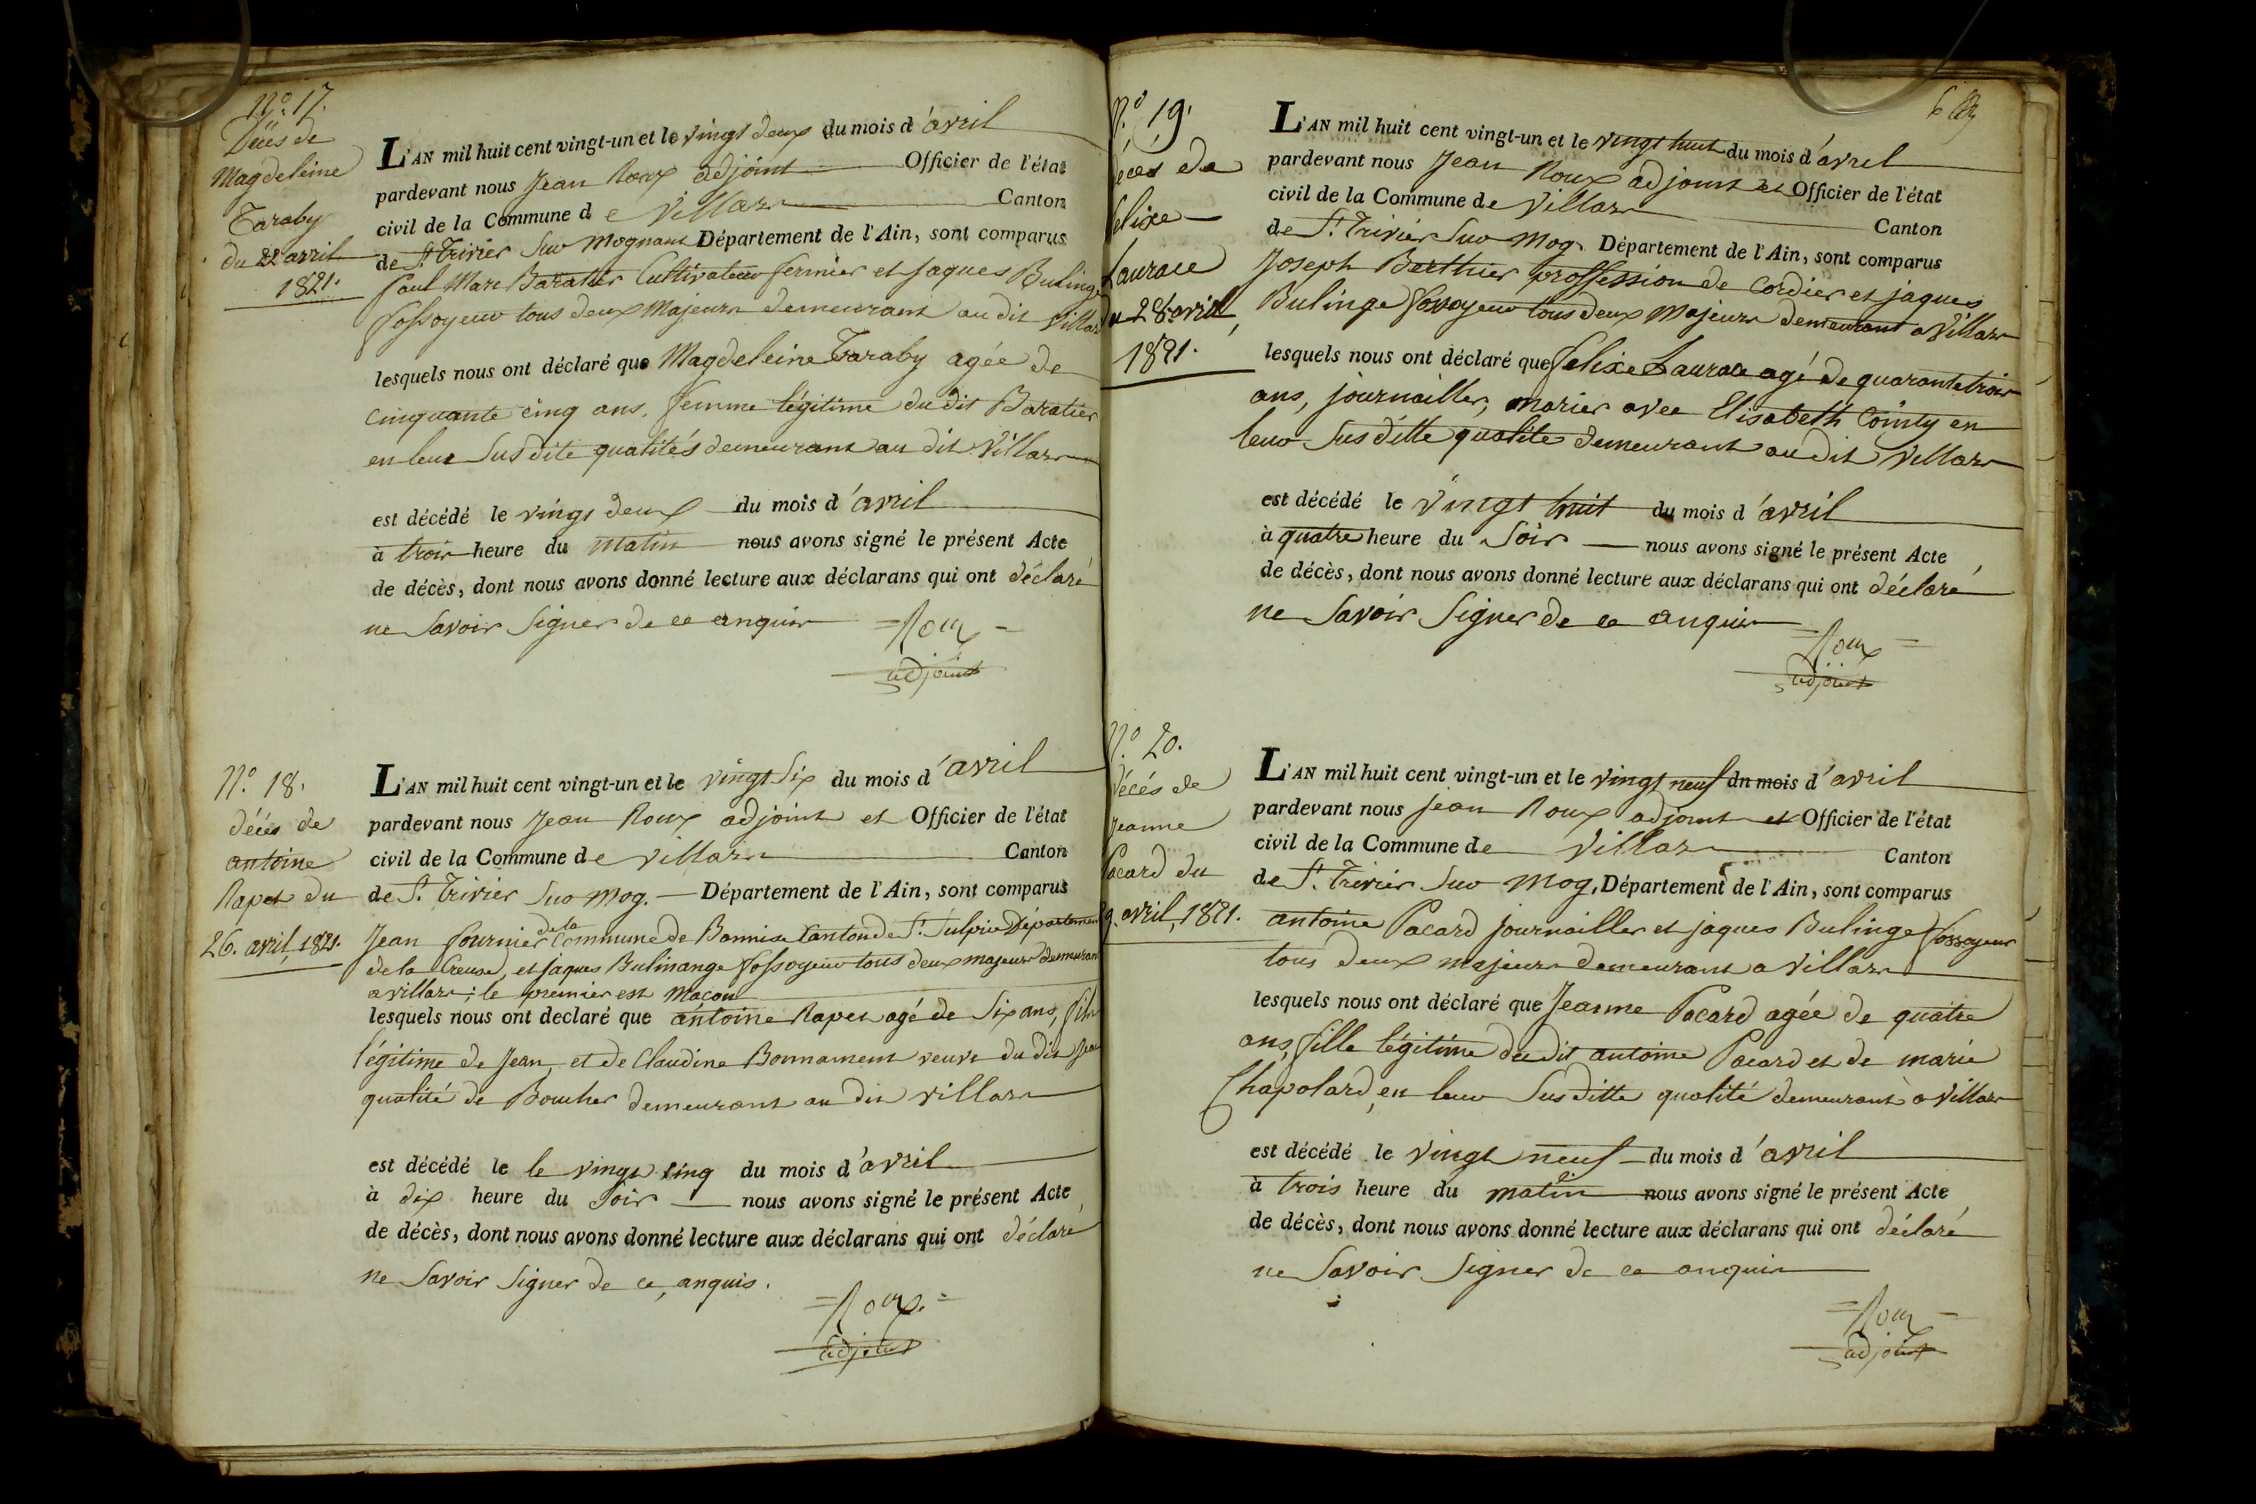 N.° 17.
Décès de
Magdeleine
Taraby
du 22 avril
1821.
L'AN mil huit cent vingt-un et le vingt deux du mois d'avril
pardevant nous Jean Roux adjoint Officier de l'état
civil de la Commune de Villars Canton
de St. Trivier Sur Mognans Département de l'Ain, sont comparus
Paul Marc Baratier Cultivateur fermier et Jaques Bulinge
fossoyeur tous deux Majeurs demeurant au dit Villars
lesquels nous ont déclaré que Magdeleine Taraby agée de
cinquante cinq ans, femme légitime du dit Baratier
en leur Sus dite qualités demeurant au dit Villars
est décédé le vingt deux du mois d'avril
à trois heure du matin nous avons signé le présent Acte
de décès, dont nous avons donné lecture aux déclarans qui ont déclaré
ne Savoir Signer de ce anquis
Roux
adjoint
N.° 18.
décès de
antoine
Rapet du
26. avril, 1821.
L'AN mil huit cent vingt-un et le vingt Six du mois d'avril
pardevant nous Jean Roux adjoint et Officier de l'état
civil de la Commune de Villars Canton
de St. Trivier Sur Mog. Département de l'Ain, sont comparus
Jean fournier de la Commune de Canton de St. Sulpice Département
de la Creuse, et jaques Bulinange fossoyeur tous deux majeurs demeurant
a villars; le premier est Maçon
lesquels nous ont declaré que antoine Rapet agé de Six ans, fils
légitime de Jean, et de Claudine Bonnament veuve du dit Jean
qualité de Boucher demeurant au dit villars
est décédé le le vingt cinq du mois d'avril
à dix heure du Soir nous avons signé le présent Acte
de décès, dont nous avons donné lecture aux déclarans qui ont déclaré
ne Savoir Signer de ce, anquis.
Roux
adjoint
N.° 19.
décès de
felixe
Laurace
du 28 avril,
1821.
L'AN mil huit cent vingt-un et le vingt huit du mois d'avril
pardevant nous Jean Roux adjoint et Officier de l'état
civil de la Commune de Villars Canton
de St. Trivier Sur Mog. Département de l'Ain, sont comparus
Joseph Berthier proffession de Cordier et jaques
Bulinge fossoyeur tous deux Majeurs demeurant a Villars
lesquels nous ont déclaré que felixe Laurace agé de quarante trois
ans, journailler, marier avec Elisabeth Cointy en
leur Sus ditte qualite demeurant au dit Villars
est décédé le Vingt huit du mois d'avril
à quatre heure du Soir nous avons signé le présent Acte
de décès, dont nous avons donné lecture aux déclarans qui ont déclaré
ne Savoir Signer de ce anquis
Roux
adjoint
N.° 20.
décés de
Jeanne
Pacard du
avril, 1821.
L'AN mil huit cent vingt-un et le vingt neuf du mois d'avril
pardevant nous Jean Roux adjoint et Officier de l'état
civil de la Commune de Villars Canton
de St. Trivier Sur Mog, Département de l'Ain, sont comparus
antoine Pacard journailler et jaques Bulinge fossoyeur
tous deux majeurs demeurant a Villars
lesquels nous ont déclaré que Jeanne Pacard agée de quatre
ans, fille légitime du dit antoine Pacard et de marie
Chapolard, en leur Sus ditte qualité demeurant a Villars
est décédé le vingt neuf du mois d'avril
à trois heure du matin nous avons signé le présent Acte
de décès, dont nous avons donné lecture aux déclarans qui ont déclaré
ne Savoir Signer de ce anquis
Roux
adjoint